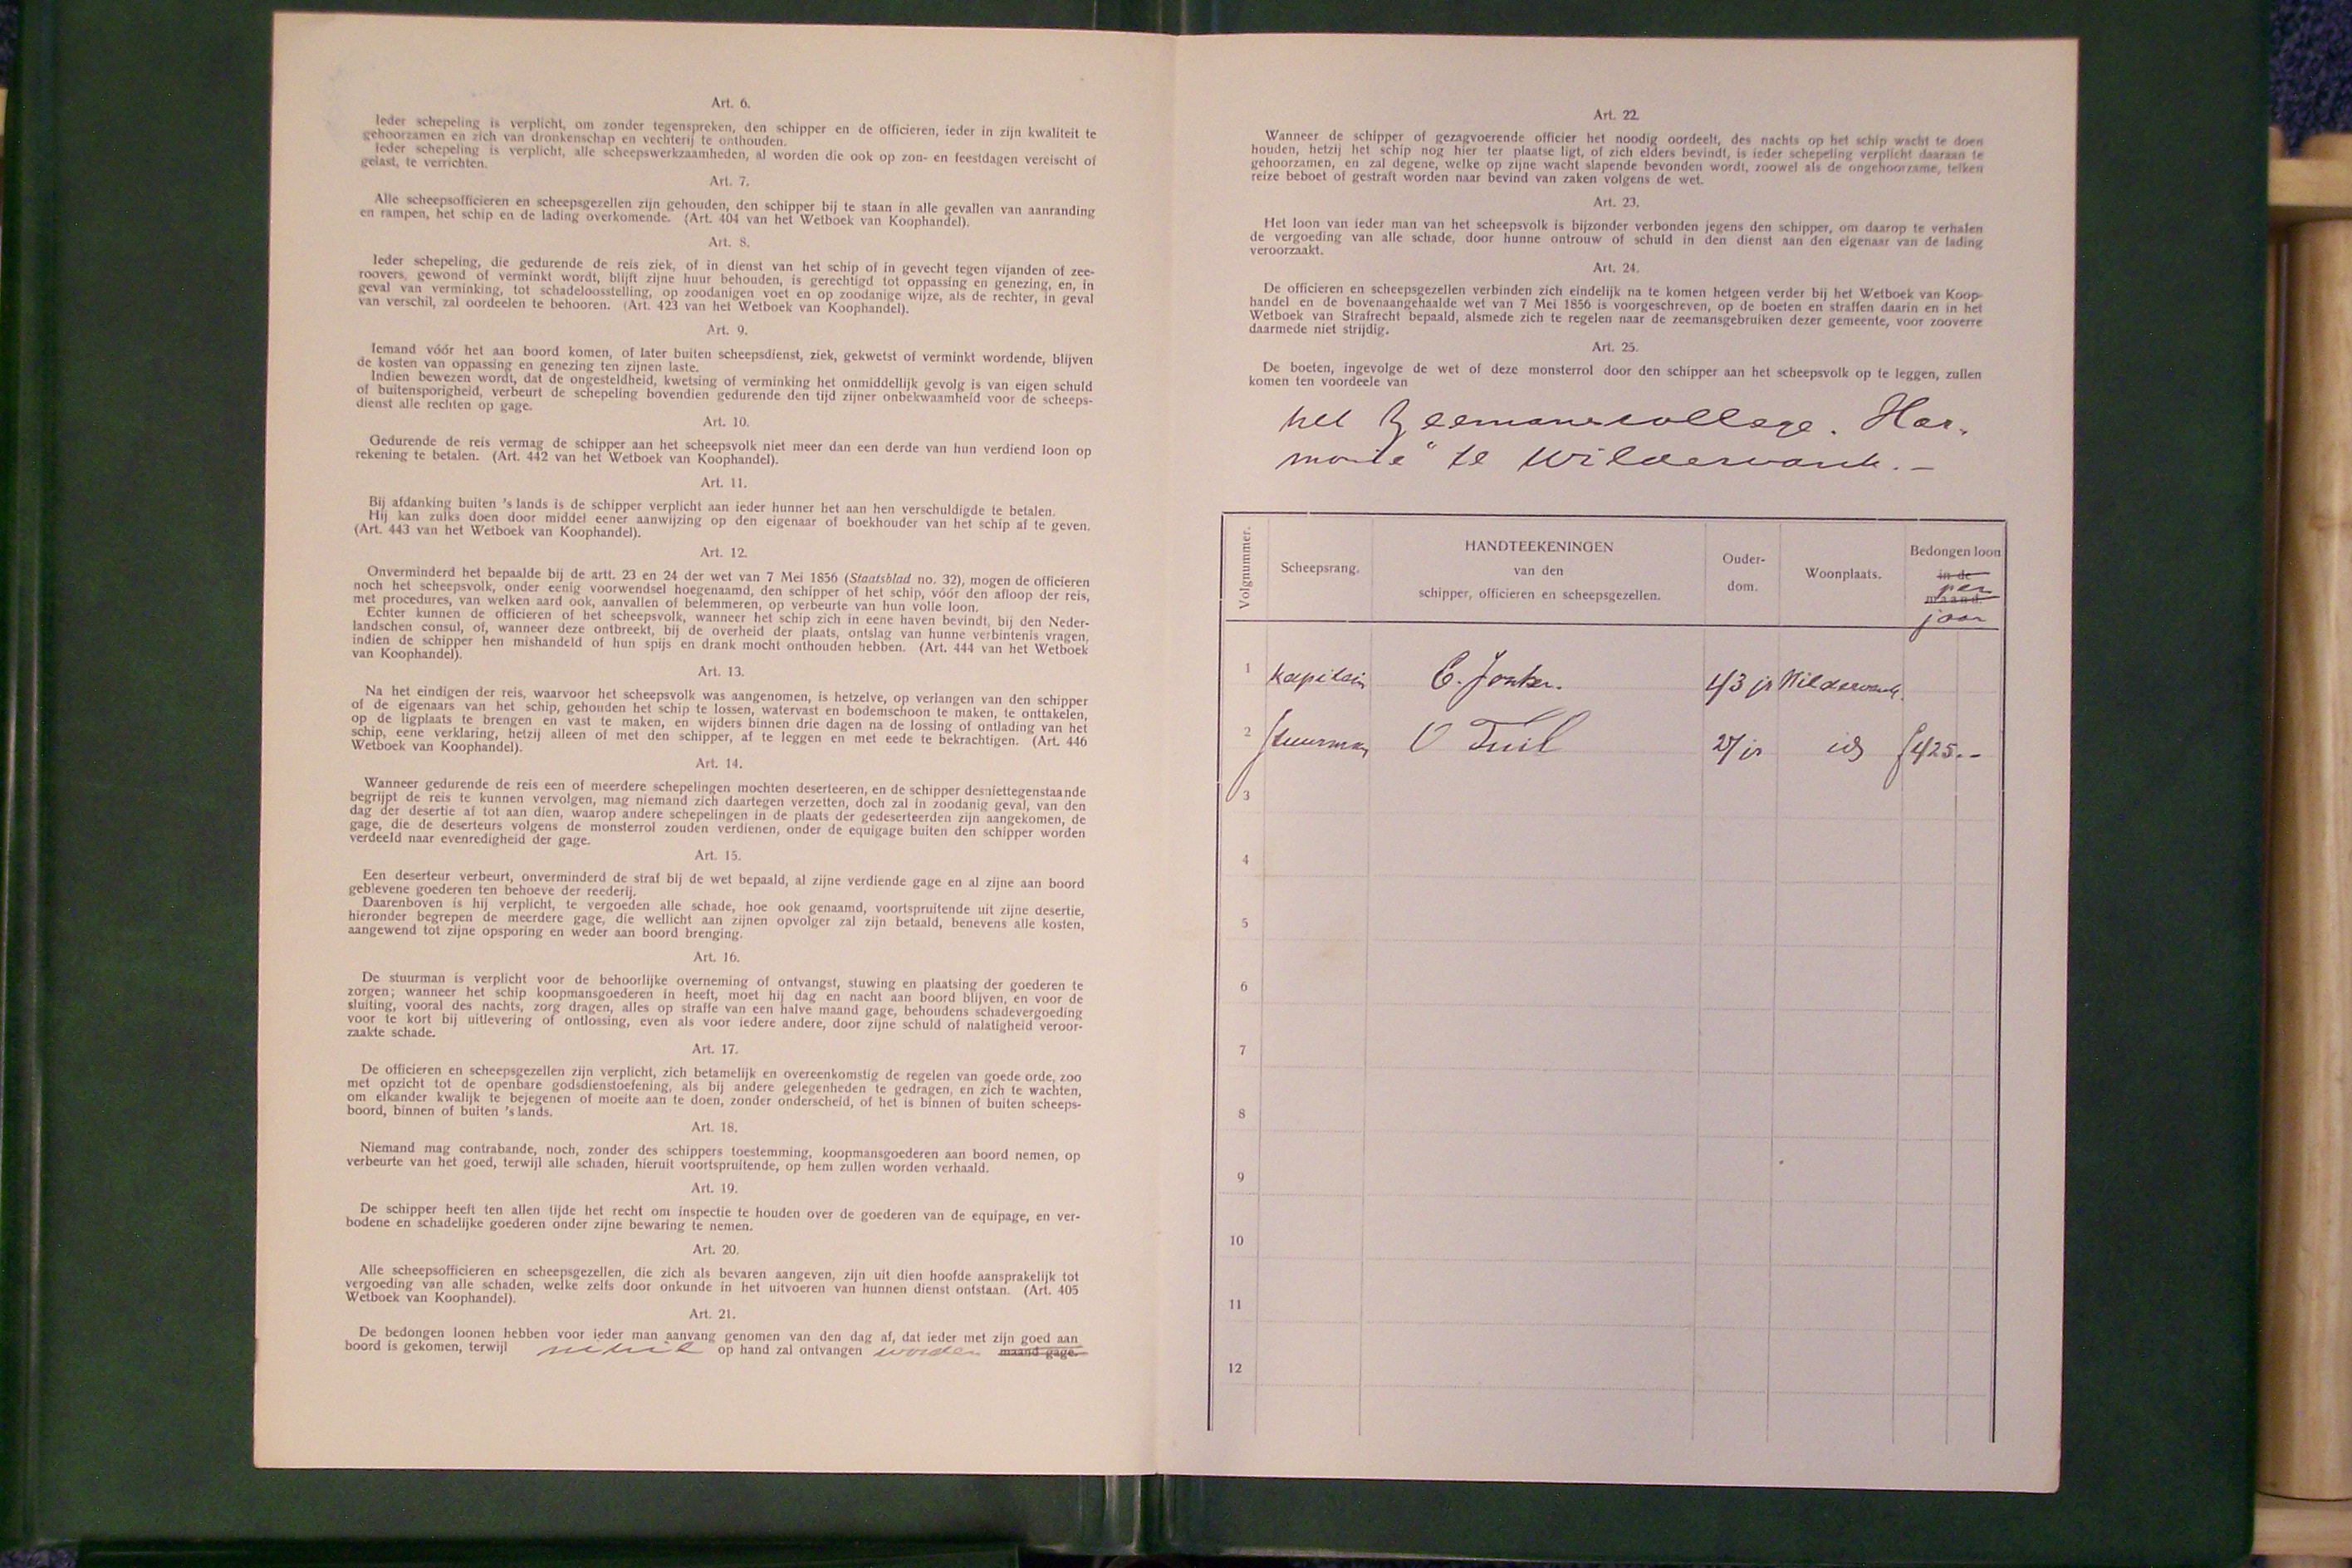 Art. 6.
Ieder schepeling is verplicht, om zonder tegenspreken, den schipper en de officieren, ieder in zijn kwaliteit te
gehoorzamen en zich van dronkenschap en vechterij te onthouden.
Ieder schepeling is verplicht, alle scheepswerkzaamheden, al worden die ook op zon- en feestdagen vereischt of
gelast, te verrichten.
Art. 7.
Alle scheepsofficieren en scheepsgezellen zijn gehouden, den schipper bij te staan in alle gevallen van aanranding
en rampen, het schip en de lading overkomende. (Art. 404 van het Wetboek van Koophandel).
Art. 8.
Ieder schepeling, die gedurende de reis ziek, of in dienst van het schip of in gevecht tegen vijanden of zee-
roovers, gewond of verminkt wordt, blijft zijne huur behouden, is gerechtigd tot oppassing en genezing, en, in
geval van verminking, tot schadeloosstelling, op zoodanigen voet en op zoodanige wijze, als de rechter, in geval
van verschil, zal oordeelen te behooren. (Art. 423 van het Wetboek van Koophandel).
Art. 9.
Iemand vóór het aan boord komen, of later buiten scheepsdienst, ziek, gekwetst of verminkt wordende, blijven
de kosten van oppassing en genezing ten zijnen laste.
Indien bewezen wordt, dat de ongesteldheid, kwetsing of verminking het onmiddellijk gevolg is van eigen schuld
of buitensporigheid, verbeurt de schepeling bovendien gedurende den tijd zijner onbekwaamheid voor de scheeps-
dienst alle rechten op gage.
Art. 10.
Gedurende de reis vermag de schipper aan het scheepsvolk niet meer dan een derde van hun verdiend loon op
rekening te betalen. (Art. 442 van het Wetboek van Koophandel).
Art. 11.
Bij afdanking buiten 's lands is de schipper verplicht aan ieder hunner het aan hen verschuldigde te betalen.
Hij kan zulks doen door middel eener aanwijzing op den eigenaar of boekhouder van het schip af te geven.
(Art. 443 van het Wetboek van Koophandel).
Art. 12.
Onverminderd het bepaalde bij de artt. 23 en 24 der wet van 7 Mei 1856 (Staatsblad no. 32), mogen de officieren
noch het scheepsvolk, onder eenig voorwendsel hoegenaamd, den schipper of het schip, vóór den afloop der reis,
met procedures, van welken aard ook, aanvallen of belemmeren, op verbeurte van hun volle loon.
Echter kunnen de officieren of het scheepsvolk, wanneer het schip zich in eene haven bevindt, bij den Neder-
landschen consul, of, wanneer deze ontbreekt, bij de overheid der plaats, ontslag van hunne verbintenis vragen,
indien de schipper hen mishandeld of hun spijs en drank mocht onthouden hebben. (Art. 444 van het Wetboek
van Koophandel).
Art. 13.
Na het eindigen der reis, waarvoor het scheepsvolk was aangenomen, is hetzelve, op verlangen van den schipper
of de eigenaars van het schip, gehouden het schip te lossen, watervast en bodemschoon te maken, te onttakelen,
op de ligplaats te brengen en vast te maken, en wijders binnen drie dagen na de lossing of ontlading van het
schip, eene verklaring, hetzij alleen of met den schipper, af te leggen en met eede te bekrachtigen. (Art. 446
Wetboek van Koophandel).
Art. 14.
Wanneer gedurende de reis een of meerdere schepelingen mochten deserteeren, en de schipper desniettegenstaande
begrijpt de reis te kunnen vervolgen, mag niemand zich daartegen verzetten, doch zal in zoodanig geval, van den
dag der desertie af tot aan dien, waarop andere schepelingen in de plaats der gedeserteerden zijn aangekomen, de
gage, die de deserteurs volgens de monsterrol zouden verdienen, onder de equigage buiten den schipper worden
verdeeld naar evenredigheid der gage.
Art. 15.
Een deserteur verbeurt, onverminderd de straf bij de wet bepaald, al zijne verdiende gage en al zijne aan boord
geblevene goederen ten behoeve der reederij.
Daarenboven is hij verplicht, te vergoeden alle schade, hoe ook genaamd, voortspruitende uit zijne desertie,
hieronder begrepen de meerdere gage, die wellicht aan zijnen opvolger zal zijn betaald, benevens alle kosten,
aangewend tot zijne opsporing en weder aan boord brenging.
Art. 16.
De stuurman is verplicht voor de behoorlijke overneming of ontvangst, stuwing en plaatsing der goederen te
zorgen; wanneer het schip koopmansgoederen in heeft, moet hij dag en nacht aan boord blijven, en voor de
sluiting, vooral des nachts, zorg dragen, alles op straffe van een halve maand gage, behoudens schadevergoeding
voor te kort bij uitlevering of ontlossing, even als voor iedere andere, door zijne schuld of nalatigheid veroor-
zaakte schade.
Art. 17.
De officieren en scheepsgezellen zijn verplicht, zich betamelijk en overeenkomstig de regelen van goede orde, zoo
met opzicht tot de openbare godsdienstoefening, als bij andere gelegenheden te gedragen, en zich te wachten,
om elkander kwalijk te bejegenen of moeite aan te doen, zonder onderscheid, of het is binnen of buiten scheeps-
boord, binnen of buiten 's lands.
Art. 18.
Niemand mag contrabande, noch, zonder des schippers toestemming, koopmansgoederen aan boord nemen, op
verbeurte van het goed, terwijl alle schaden, hieruit voortspruitende, op hem zullen worden verhaald.
Art. 19.
De schipper heeft ten allen tijde het recht om inspectie te houden over de goederen van de equipage, en ver-
bodene en schadelijke goederen onder zijne bewaring te nemen.
Art. 20.
Alle scheepsofficieren en scheepsgezellen, die zich als bevaren aangeven, zijn uit dien hoofde aansprakelijk tot
vergoeding van alle schaden, welke zelfs door onkunde in het uitvoeren van hunnen dienst ontstaan. (Art. 405
Wetboek van Koophandel).
Art. 21.
De bedongen loonen hebben voor ieder man aanvang genomen van den dag af, dat ieder met zijn goed aan
boord is gekomen, terwijl op hand zal ontvangen worden maand gage.
Art. 22.
Wanneer de schipper of gezagvoerende officier het noodig oordeelt, des nachts op het schip wacht te doen
houden, hetzij het schip nog hier ter plaatse ligt, of zich elders bevindt, is ieder schepeling verplicht daaraan te
gehoorzamen, en zal degene, welke op zijne wacht slapende bevonden wordt, zoowel als de ongehoorzame, telken
reize beboet of gestraft worden naar bevind van zaken volgens de wet.
Art. 23.
Het loon van ieder man van het scheepsvolk is bijzonder verbonden jegens den schipper, om daarop te verhalen
de vergoeding van alle schade, door hunne ontrouw of schuld in den dienst aan den eigenaar van de lading
veroorzaakt.
Art. 24.
De officieren en scheepsgezellen verbinden zich eindelijk na te komen hetgeen verder bij het Wetboek van Koop-
handel en de bovenaangehaalde wet van 7 Mei 1856 is voorgeschreven, op de boeten en straffen daarin en in het
Wetboek van Strafrecht bepaald, alsmede zich te regelen naar de zeemansgebruiken dezer gemeente, voor zooverre
daarmede niet strijdig.
Art. 25.
De boeten, ingevolge de wet of deze monsterrol door den schipper aan het scheepsvolk op te leggen, zullen
komen ten voordeele van
het Zeemanscollege. Har-
monie" te Wildervank. -
Volgnummer.
Scheepsrang.
HANDTEEKENINGEN
van den
schipper, officieren en scheepsgezellen.
Ouder-
dom.
Woonplaats.
Bedongen loon
in de
per
maand.
jaar
1 Kapitein C. Jonker. 43 jr Wildervank.
2 Stuurman 27 jr id f 425.-
3
4
5
6
7
8
9
10
11
12